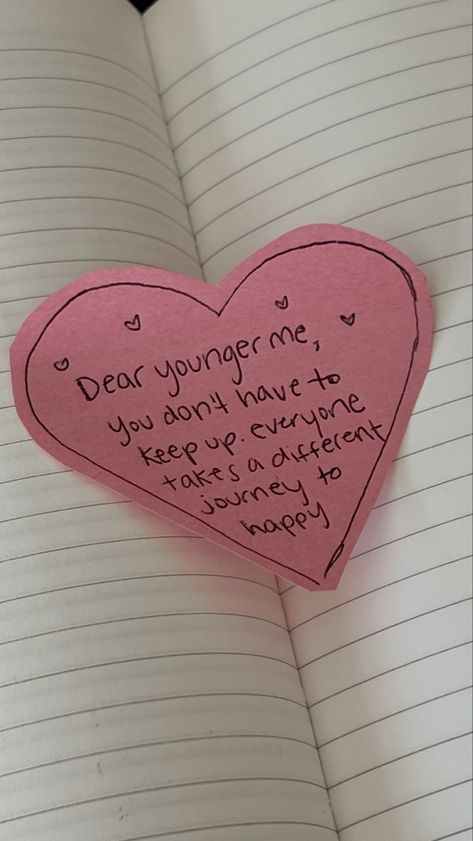 Dear younger me,
you don't have to
keep up. everyone
takes a different
journey to
happy